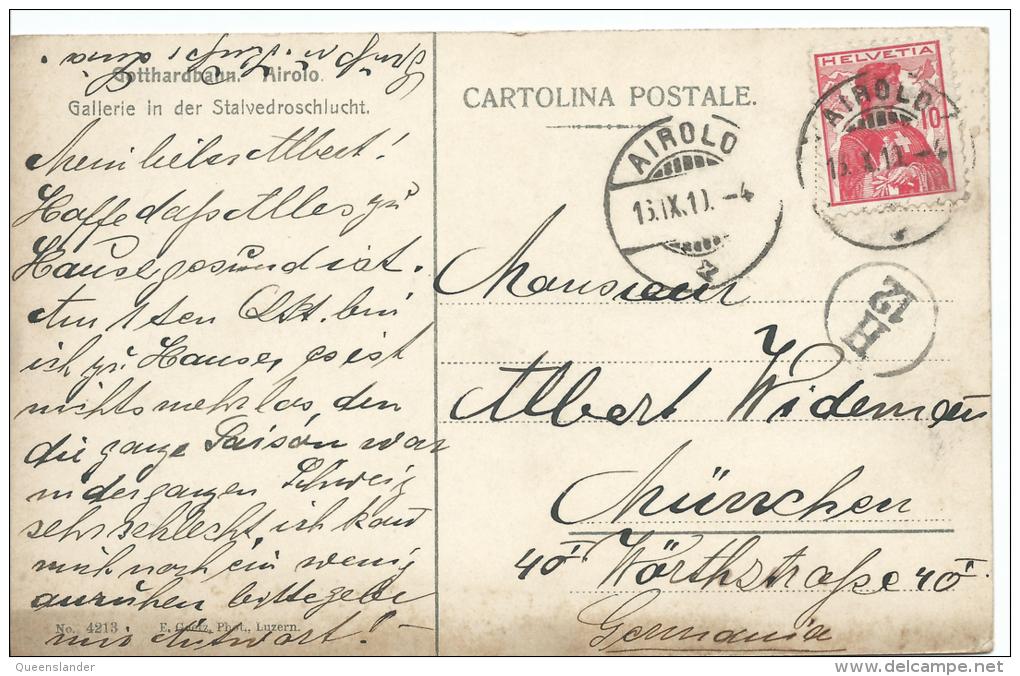 Gotthardbahn. Airolo.
Gallerie in der Stalvedroschlucht.
Mein lieber Albert!
Hoffe dass Alles zu
Hause gesund ist.
Am 1ten Okt. bin
ich zu Hause, es ist
nichts mehr los, den
die ganze Saison war
in der ganzen Schweiz
sehr schlecht, ich kan
mich noch ein wenig
ausruhen bitte gebe
mir Antwort!
No. 4213 E. Goetz, Phot., Luzern.
CARTOLINA POSTALE.
HELVETIA
10
AIROLO
AIROLO
13.IX.10.-4
12
Monsieur
Albert Wideman
München
40 Wörthstraße 40
Germania
Queenslander
delcampe.net